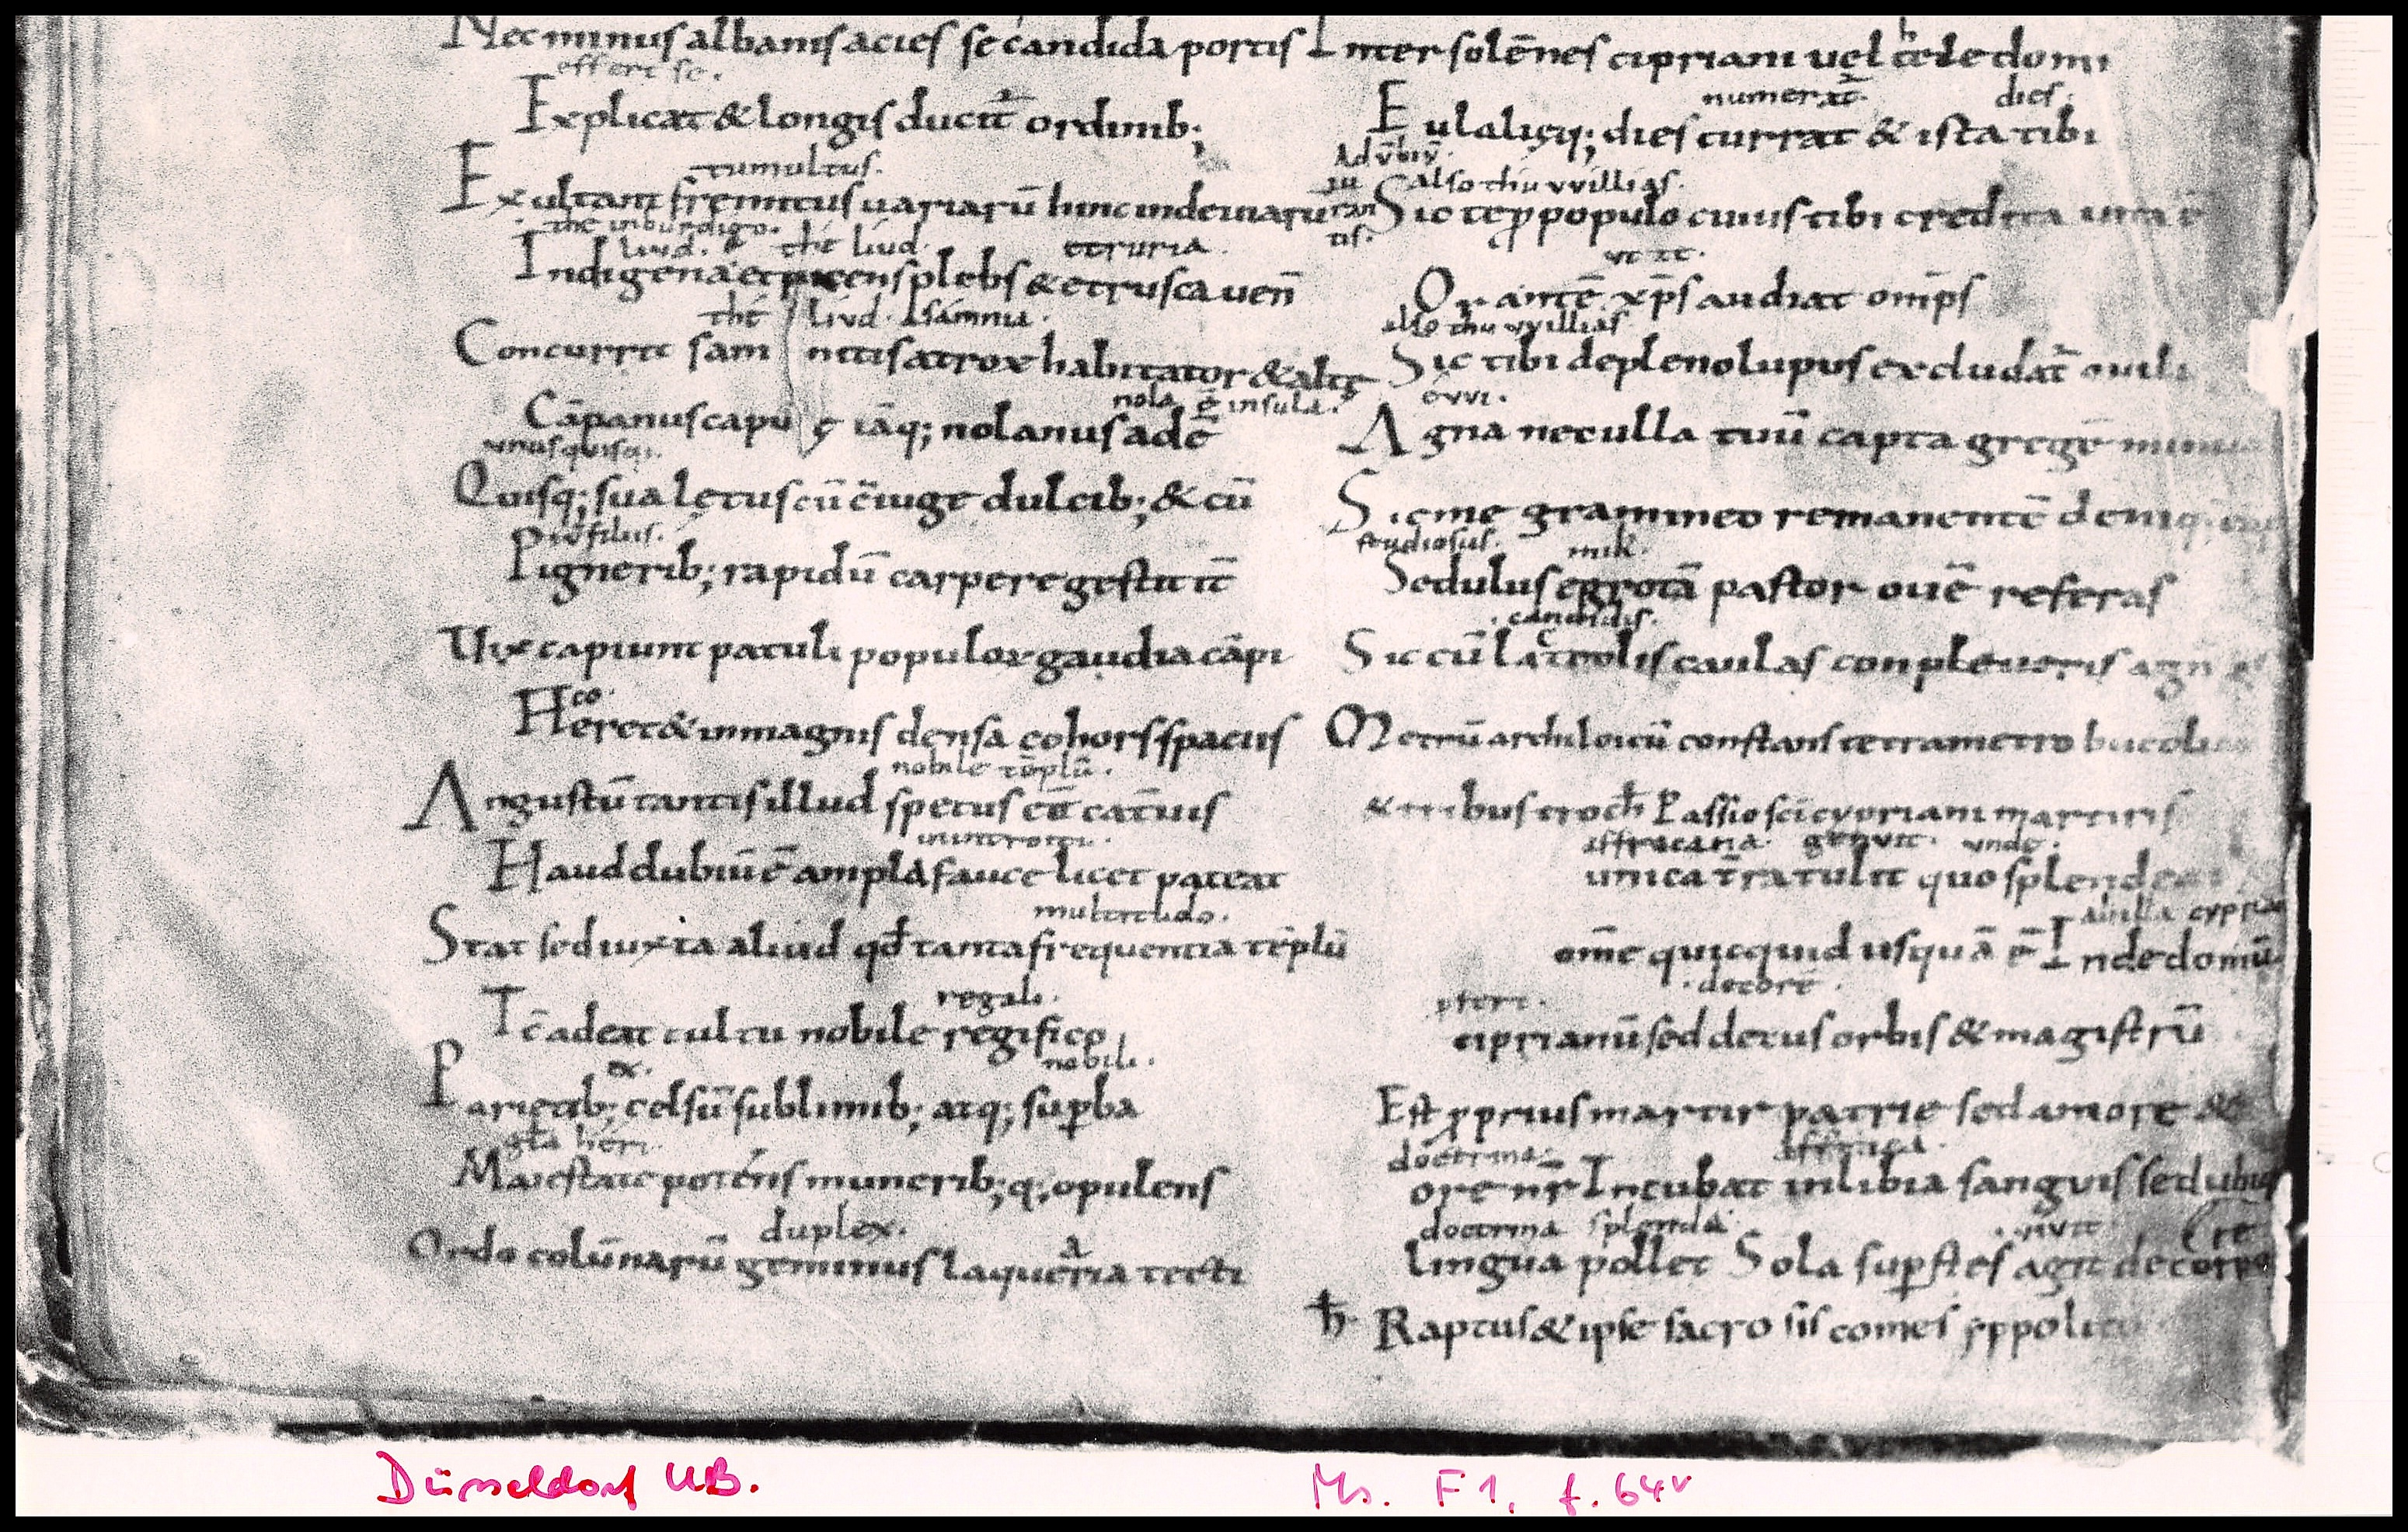 Nec minus albanis acies se candida portis
effert se.
Explicat & longis ducit᷑ ordinib;
tumultus.
Exultant fremitus uariarū hinc inde uiarū
the inburdigo.
liud. the liud. etruria.
Indigena et picens plebs & etrusca uen̄
thé liud. samnia.
Concurrit sam nitis atrox habitator & alte
nola ē insula.
Cāpanus capu ę iāq; nolanus adē
unusquisq;.
Quisq; sua lętus cū c̄iuge dulcib; & cū
filiis.
Pignerib; rapidū carpere gestit it̄
Vix capiunt patuli populorū gaudia cāpi
Heret & in magnis densa cohors spaciis
nobile tēplū.
Angustū tantis illud specus ēē cat̄uis
Haud dubiū ē ampla fauce licet pateat
multitudo.
Stat sed iuxta aliud qđ tanta frequentia tēplū
regali.
Tc̄ adeat cultu nobile regifico
ex. nobili.
Parietib; celsū sublimib; atq; suꝑba
Maiestate poténs munerib; q; opulens
duplex.
Ordo colūnarū geminus laquearia tecti
Inter solēnes cipriani uel celedoni
numerat᷑ dies.
Eulalięq; dies currat & ista tibi
Adv̄biū.
also thu vvillias.
Sic te ꝓ populo cuius tibi credita uita ē
Orantē xp̄s audiat omīps
also thu vvillias
Sic tibi de pleno lupus excludat᷑ ouili
ovvi.
Agna nec ulla tuū capta gregē
Sic me gramineo remanentē deniq;
studiosus. mik.
Sedulus egrotā pastor ouē referas
candidis.
Sic cū lacteolis caulas conpleueris agn
Metrū archiloicū constans tetrametro bucolico
& tribus troch̄ Passio sc̄i cypriani martiris
affracana. genuit. unde.
unica t̄ra tulit quo splendeat
om̄e quicquid usquā ē Inde domū
decorē.
ciprianū sed decus orbis & magistrū
Est ꝓprius martir patrie sed amore &
doctrina. affrica.
ore nr̄ Incubat in libia sanguis sed ubiq
doctrina splendǣ.
lingua pollet Sola suꝑstes agit de corpo
(re
ħ Raptus & ipse sacro sis comes yppolito
Düsseldorf UB.
Ms. F1, f. 64v